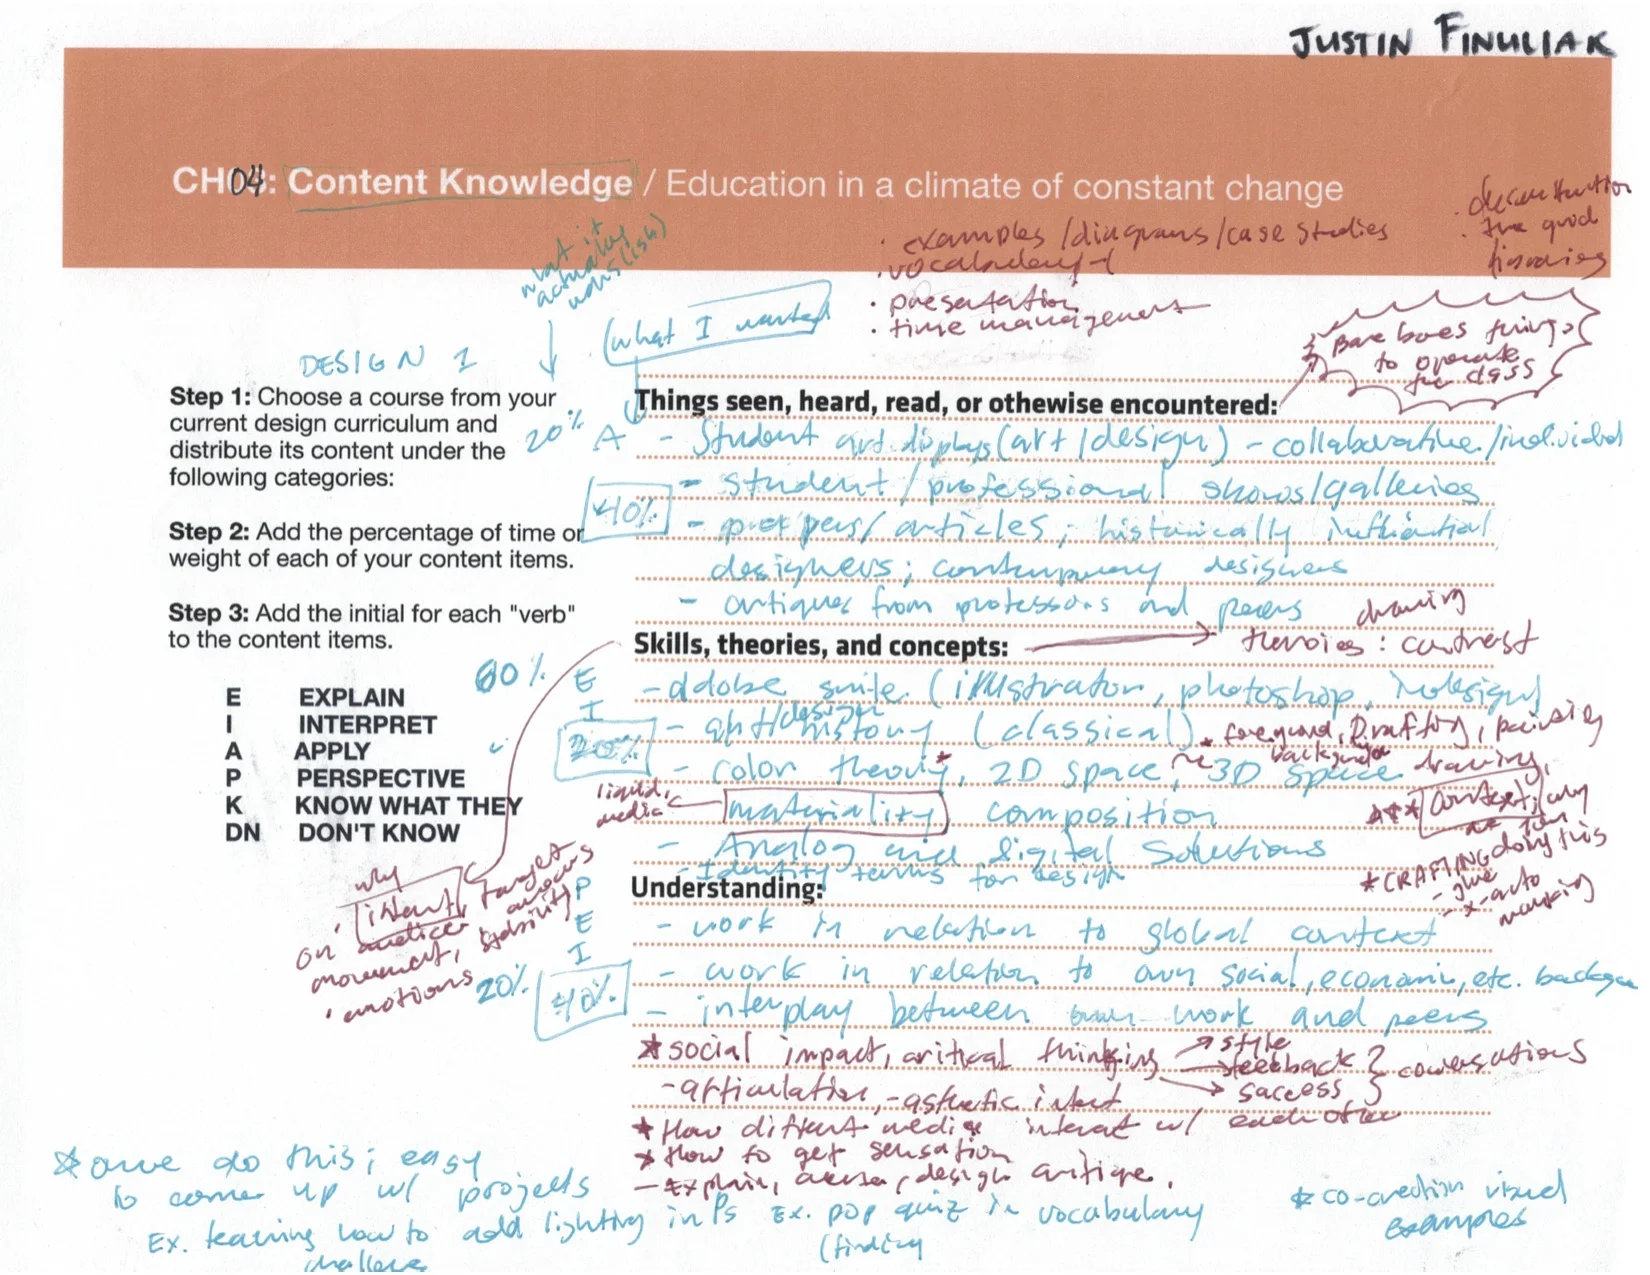 JUSTIN FINULIAK
CH04: Content Knowledge / Education in a climate of constant change
what it actually was (ish)
· examples / diagrams / case studies
· vocabulary
· presentation
· time management
(what I wanted
Bare bones things
to operate
the class
DESIGN 1
Step 1: Choose a course from your
current design curriculum and
distribute its content under the
following categories:
Step 2: Add the percentage of time or
weight of each of your content items.
Step 3: Add the initial for each "verb"
to the content items.
E EXPLAIN
I INTERPRET
A APPLY
P PERSPECTIVE
K KNOW WHAT THEY
DN DON'T KNOW
Things seen, heard, read, or othewise encountered:
20% A - Student art displays (art / design) - collaborative / individual
- student / professional shows/galleries
40%
- papers / articles ; historically influential
designers ; contemporary designers
- critiques from professors and peers
Skills, theories, and concepts:
drawing
theroies : contrast
60% E
- adobe suite (illustrator, photoshop, indesign)
I
- art/design history (classical)
20%
* foreground, Drafting, painting
background
- color theory*, 2D space, 3D space
drawing,
liquid,
media
materiality, composition
*** context, why
doing this
- Analog and digital solutions
- Identity terms for design
* CRAFTING
- glue
- x-acto
Understanding:
P
E
I
- work in relation to global context
- work in relation to own social, economic, etc.
- interplay between own work and peers
20%
40%
why
intent, target
on audience
movement,
· emotions
* social impact, critical thinking
style
feedback
success
conversations
- articulation, - asthetic intent
* How difrent media interact w/ each other
* How to get sensation
- Explain, design critique.
* one do this ; easy
to come up w/ projects
Ex. learning how to add lighting in Ps
Ex. pop quiz in vocabulary
(finding
* co-creation visual
examples